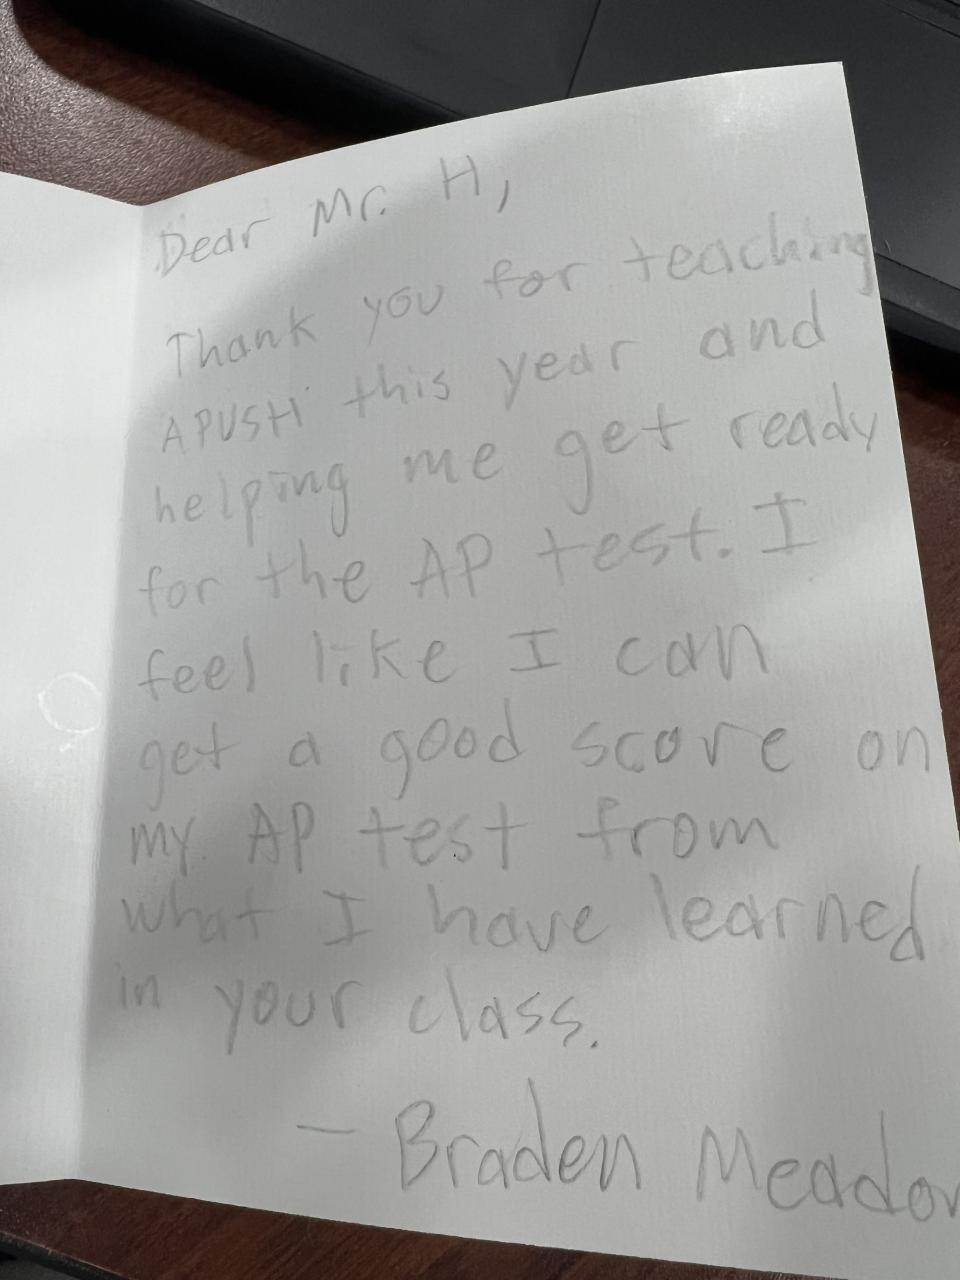 Dear Mr. H,
Thank you for teaching
APUSH this year and
helping me get ready
for the AP test. I
feel like I can
get a good score on
my AP test from
what I have learned
in your class.
— Braden